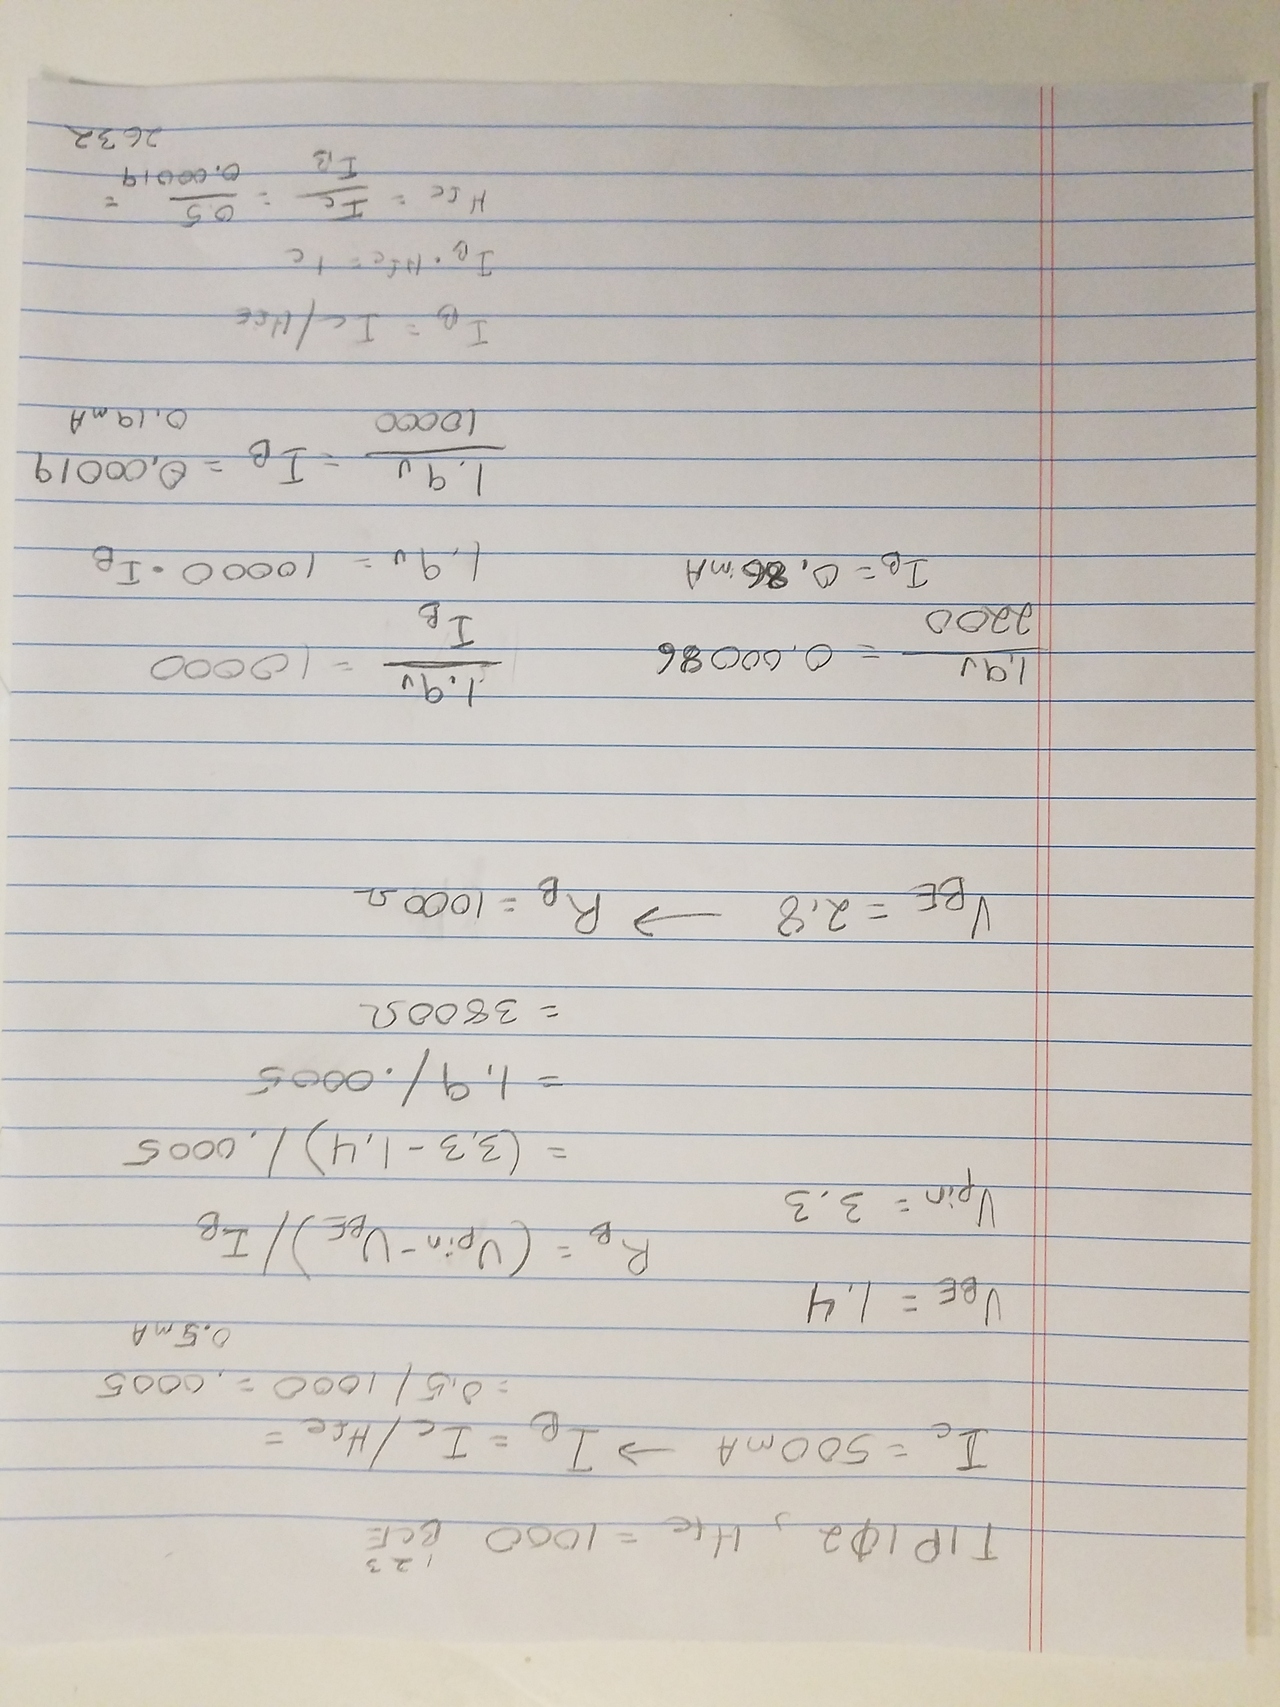 1 2 3
TIP1Ø2, Hfe = 1000 BCE
Ic = 500mA → IB = Ic/Hfe =
= 0.5/1000 = .0005
0.5mA
VBE = 1.4
RB = (Vpin-VBE)/IB
Vpin = 3.3
= (3.3-1.4)/.0005
= 1.9/.0005
= 3800Ω
VBE = 2.8 → RB = 1000Ω
1.9v/2200 = 0.00086
IB = 0.86mA
1.9v/IB = 10000
1.9v = 10000 · IB
1.9v/10000 = IB = 0.00019
0.19mA
IB = Ic/HfE
IB · Hfe = Ic
Hfe = Ic/IB = 0.5/0.00019 =
2632